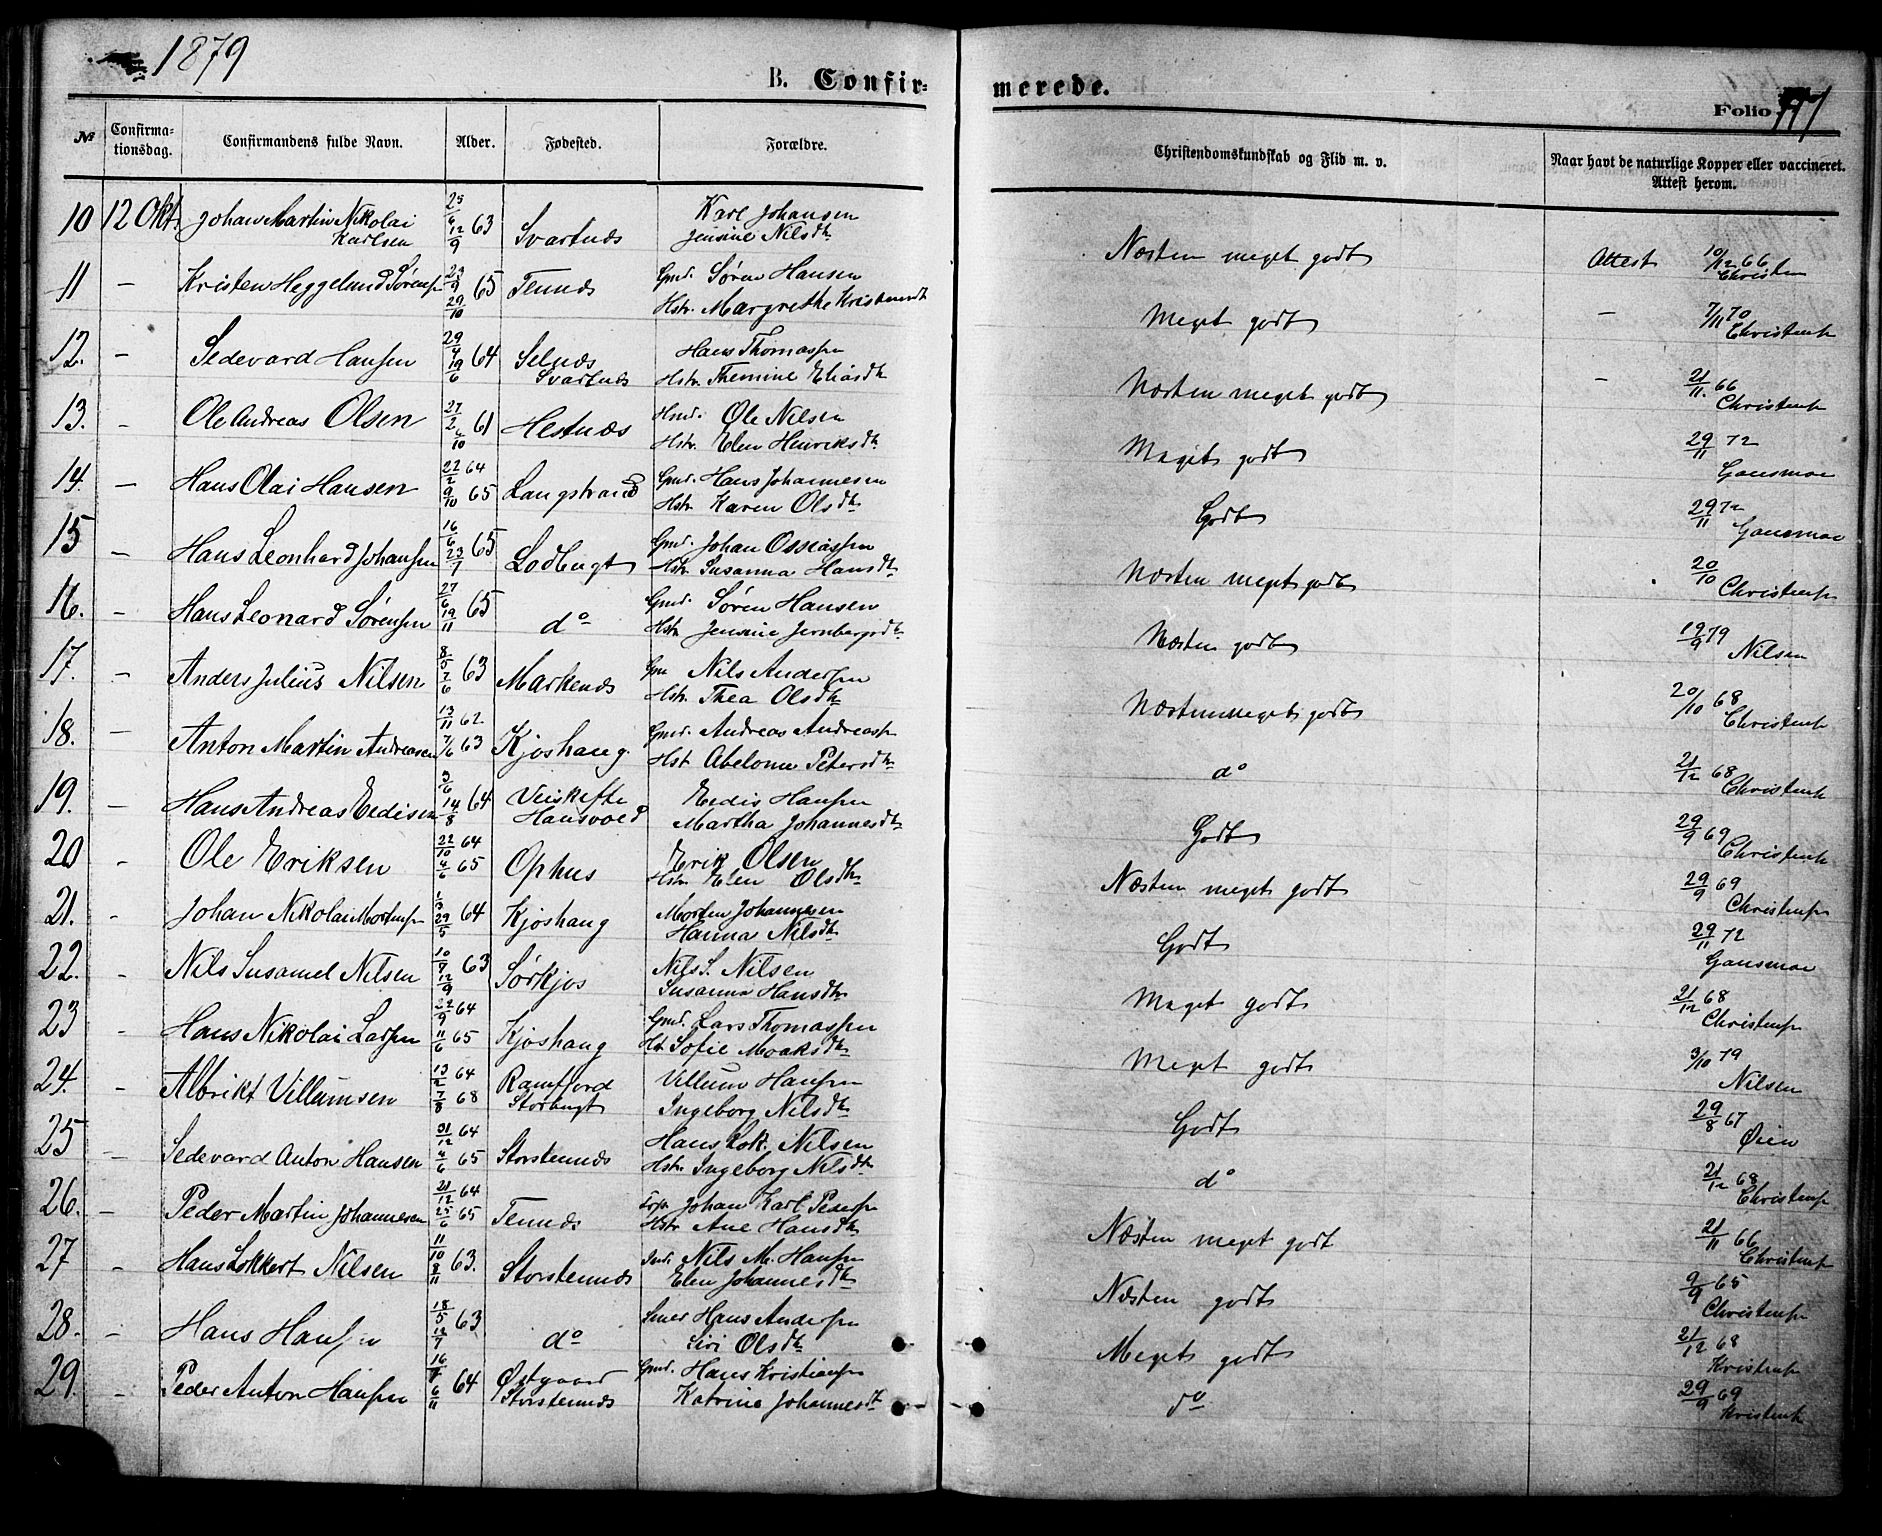 1879
B. Confir-
merede.
Folio
№
Confirma-
tionsdag.
Confirmandens fulde Navn.
Alder.
Fødested.
Forældre.
Christendomskundskab og Flid m. v.
Naar havt de naturlige Kopper eller vaccineret.
Attest herom.
10 12 Okt. Johan Martin Nikolai Karlsen 25/6 12/9 63 Svartnæs Karl Johansen
Jensine Nilsdtr
Næsten meget godt Attest 10/12 66 Christen
11 — Kristen Heggelund Sørensen 29/9 29/10 65 Tennæs Gmd. Søren Hansen
Hstr. Margrethe Kristensdt
Meget godt — 7/11 70 Christensen
12. — Sedevard Hansen 29/4 19/6 64 Selnæs Svartnæs Hans Thomassen
Hstr. Themine Eliasdtr
Næsten meget godt — 21/11. 66 Christensen
13. — Ole Andreas Olsen 27/2 /10 61 Hestnæs Hsmd. Ole Nilsen
Hstr. Elen Henriksdtr
Meget godt 29/11 72 Gansmoe
14. — Hans Olai Hansen 22/2 64 9/10 65 Langstrand Gmd. Hans Johannesen
Hstr. Karen Olsdtr
Godt 29/11 72 Gansmoe
15 — Hans Leonhard Johansen 16/6 23/7 65 Lodbugt Gmd. Johan Ossiassen
Hstr Susanna Hansdtr
Næsten meget godt 20/10 Christensen
16. — Hans Leonard Sørensen 27/6 19/11 65 do Gmd. Søren Hansen
Hstr Jensine Jernbergsdtr
Næsten godt 19/9 79 Nilsen
17. — Anders Julius Nilsen 8/5 7/6 63 Markenæs Gm Nils Andersen
Hstr. Thea Olsdtr
Næsten meget godt 20/10 68 Christensen
18. — Anton Martin Andreasen 13/11 62 7/6 63 Kjoshaug. Gmd. Andreas Andreassen
Hst Abelone Petersdtr
do 21/12 68 Christensen
19. — Hans Andreas Eedisen 3/6 14/8 64 Veiskefte Hansvold Eedis Hansen
Martha Johannesdtr
Godt 29/9 69 Christensen
20 - Ole Eriksen 22/10 64 4/6 65 Ophus Erik Olsen
Hstr Elen Olsdtr
Næsten meget godt 29/9 69 Christensen
21. - Johan Nikolai Mortensen 1/3 29/5 64 Kjoshaug Morten Johannesen
Hanna Nilsdtr
Godt 29/11 72 Gansmoe
22. - Nils Susamel Nilsen 10/9 12/9 63 Sørkjos Nils S. Nilsen
Susanna Hansdtr
Meget godt 21/12 68 Christensen
23 - Hans Nikolai Larsen 22/9 64 11/6 65 Kjoshaug Gmd. Lars Thomassen
Hst Sofie Moaksdtr
Meget godt 3/10 79 Nilsen
24. - Albrikt Villumsen 13/2 64 7/8 68 Ramfjord Storbugt Villum Hansen
Ingeborg Nilsdtr
Godt 29/8 67 Øien
25 — Sedevard Anton Hansen 31/12 64 4/6 65 Storstennæs Hans Lok. Nilsen
Hstr. Ingeborg Nilsdtr
do 21/12 68 Christensen
26. — Peder Martin Johannesen 21/12 64 25/6 65 Tennæs Johan Karl Pedersen
Hstr Ane Hansdtr
Næsten meget godt 21/11 66 Christensen
27 - Hans Lokkert Nilsen 11/10 8/11 63. Storstennæs Nils M. Hansen
Elen Johannesdtr
Næsten godt 9/9 65 Christensen
28. - Hans Hansen 18/5 12/7 63 do Hans Andersen
Siri Olsdtr
Meget godt 21/12 68 Kristensen
29. - Peder Anton Hansen 16/7 6/11 64 Østgaard Storstennæs Gmd. Hans Kristiansen
Katrine Johannesdt
do 29/9 69 Kristensen